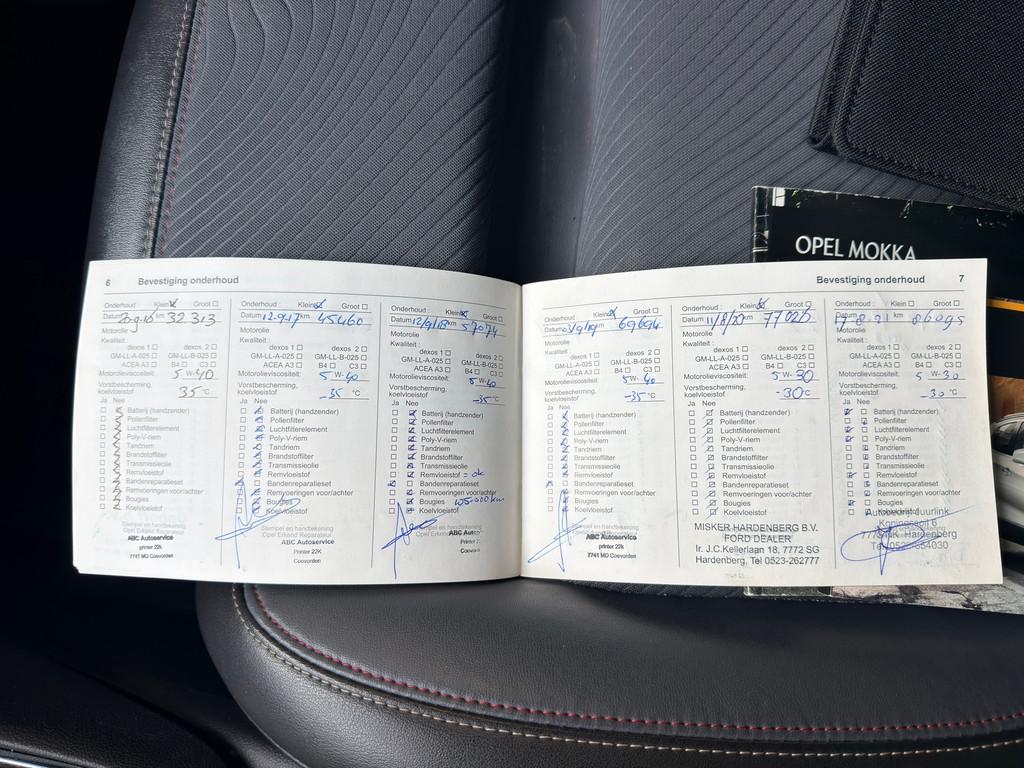 OPEL MOKKA
6 Bevestiging onderhoud
Onderhoud : Klein Groot
Datum 20-9-16 km 32.313
Motorolie
Kwaliteit :
dexos 1 dexos 2
GM-LL-A-025 GM-LL-B-025
ACEA A3 B4 C3
Motorolieviscositeit: 5 W-40
Vorstbescherming,
koelvloeistof 35 °C
Ja Nee
Batterij (handzender)
Pollenfilter
Luchtfilterelement
Poly-V-riem
Tandriem
Brandstoffilter
Transmissieolie
Remvloeistof
Bandenreparatieset
Remvoeringen voor/achter
Bougies
Koelvloeistof
Stempel en handtekening
Opel Erkend Reparateur
ABC Autoservice
printer 22k
7741 MD Coevorden
Onderhoud : Klein Groot
Datum 12-9-17 km 45460
Motorolie
Kwaliteit :
dexos 1 dexos 2
GM-LL-A-025 GM-LL-B-025
ACEA A3 B4 C3
Motorolieviscositeit: 5 W-40
Vorstbescherming,
koelvloeistof -35 °C
Ja Nee
Batterij (handzender)
Pollenfilter
Luchtfilterelement
Poly-V-riem
Tandriem
Brandstoffilter
Transmissieolie
Remvloeistof
Bandenreparatieset
Remvoeringen voor/achter
Bougies
Koelvloeistof
Stempel en handtekening
Opel Erkend Reparateur
ABC Autoservice
printer 22K
Coevorden
Onderhoud : Klein Groot
Datum 12/9/18 km 57074
Motorolie
Kwaliteit :
dexos 1 dexos 2
GM-LL-A-025 GM-LL-B-025
ACEA A3 B4 C3
Motorolieviscositeit: 5 W-40
Vorstbescherming,
koelvloeistof -35 °C
Ja Nee
Batterij (handzender)
Pollenfilter
Luchtfilterelement
Poly-V-riem
Tandriem
Brandstoffilter
Transmissieolie
Remvloeistof = ok
Bandenreparatieset
Remvoeringen voor/achter
Bougies 105-000 km
Koelvloeistof
Stempel en handtekening
Opel Erkend
ABC Aut
Printer
Coevor
Bevestiging onderhoud 7
Onderhoud : Klein Groot
Datum /9/19 km 69694
Motorolie
Kwaliteit :
dexos 1 dexos 2
GM-LL-A-025 GM-LL-B-025
ACEA A3 B4 C3
Motorolieviscositeit: 5 W-40
Vorstbescherming,
koelvloeistof -35 °C
Ja Nee
Batterij (handzender)
Pollenfilter
Luchtfilterelement
Poly-V-riem
Tandriem
Brandstoffilter
Transmissieolie
Remvloeistof
Bandenreparatieset
Remvoeringen voor/achter
Bougies
Koelvloeistof
Stempel en handtekening
Opel Erkend Reparateur
ABC Autoservice
printer 22k
7741 MD Coevorden
Onderhoud : Klein Groot
Datum 11/8/20 km 77025
Motorolie
Kwaliteit :
dexos 1 dexos 2
GM-LL-A-025 GM-LL-B-025
ACEA A3 B4 C3
Motorolieviscositeit: 5 W-30
Vorstbescherming,
koelvloeistof -30 °C
Ja Nee
Batterij (handzender)
Pollenfilter
Luchtfilterelement
Poly-V-riem
Tandriem
Brandstoffilter
Transmissieolie
Remvloeistof
Bandenreparatieset
Remvoeringen voor/achter
Bougies
Koelvloeistof
MISKER HARDENBERG B.V.
FORD DEALER
Ir. J.C.Kellerlaan 18, 7772 SG
Hardenberg, Tel 0523-262777
Onderhoud : Klein Groot
Datum km 86095
Motorolie
Kwaliteit :
dexos 1 dexos 2
GM-LL-A-025 GM-LL-B-025
ACEA A3 B4 C3
Motorolieviscositeit: 5 W-30
Vorstbescherming,
koelvloeistof -30 °C
Ja Nee
Batterij (handzender)
Pollenfilter
Luchtfilterelement
Poly-V-riem
Tandriem
Brandstoffilter
Transmissieolie
Remvloeistof
Bandenreparatieset
Remvoeringen voor/achter
Bougies
Koelvloeistof
Hardenberg